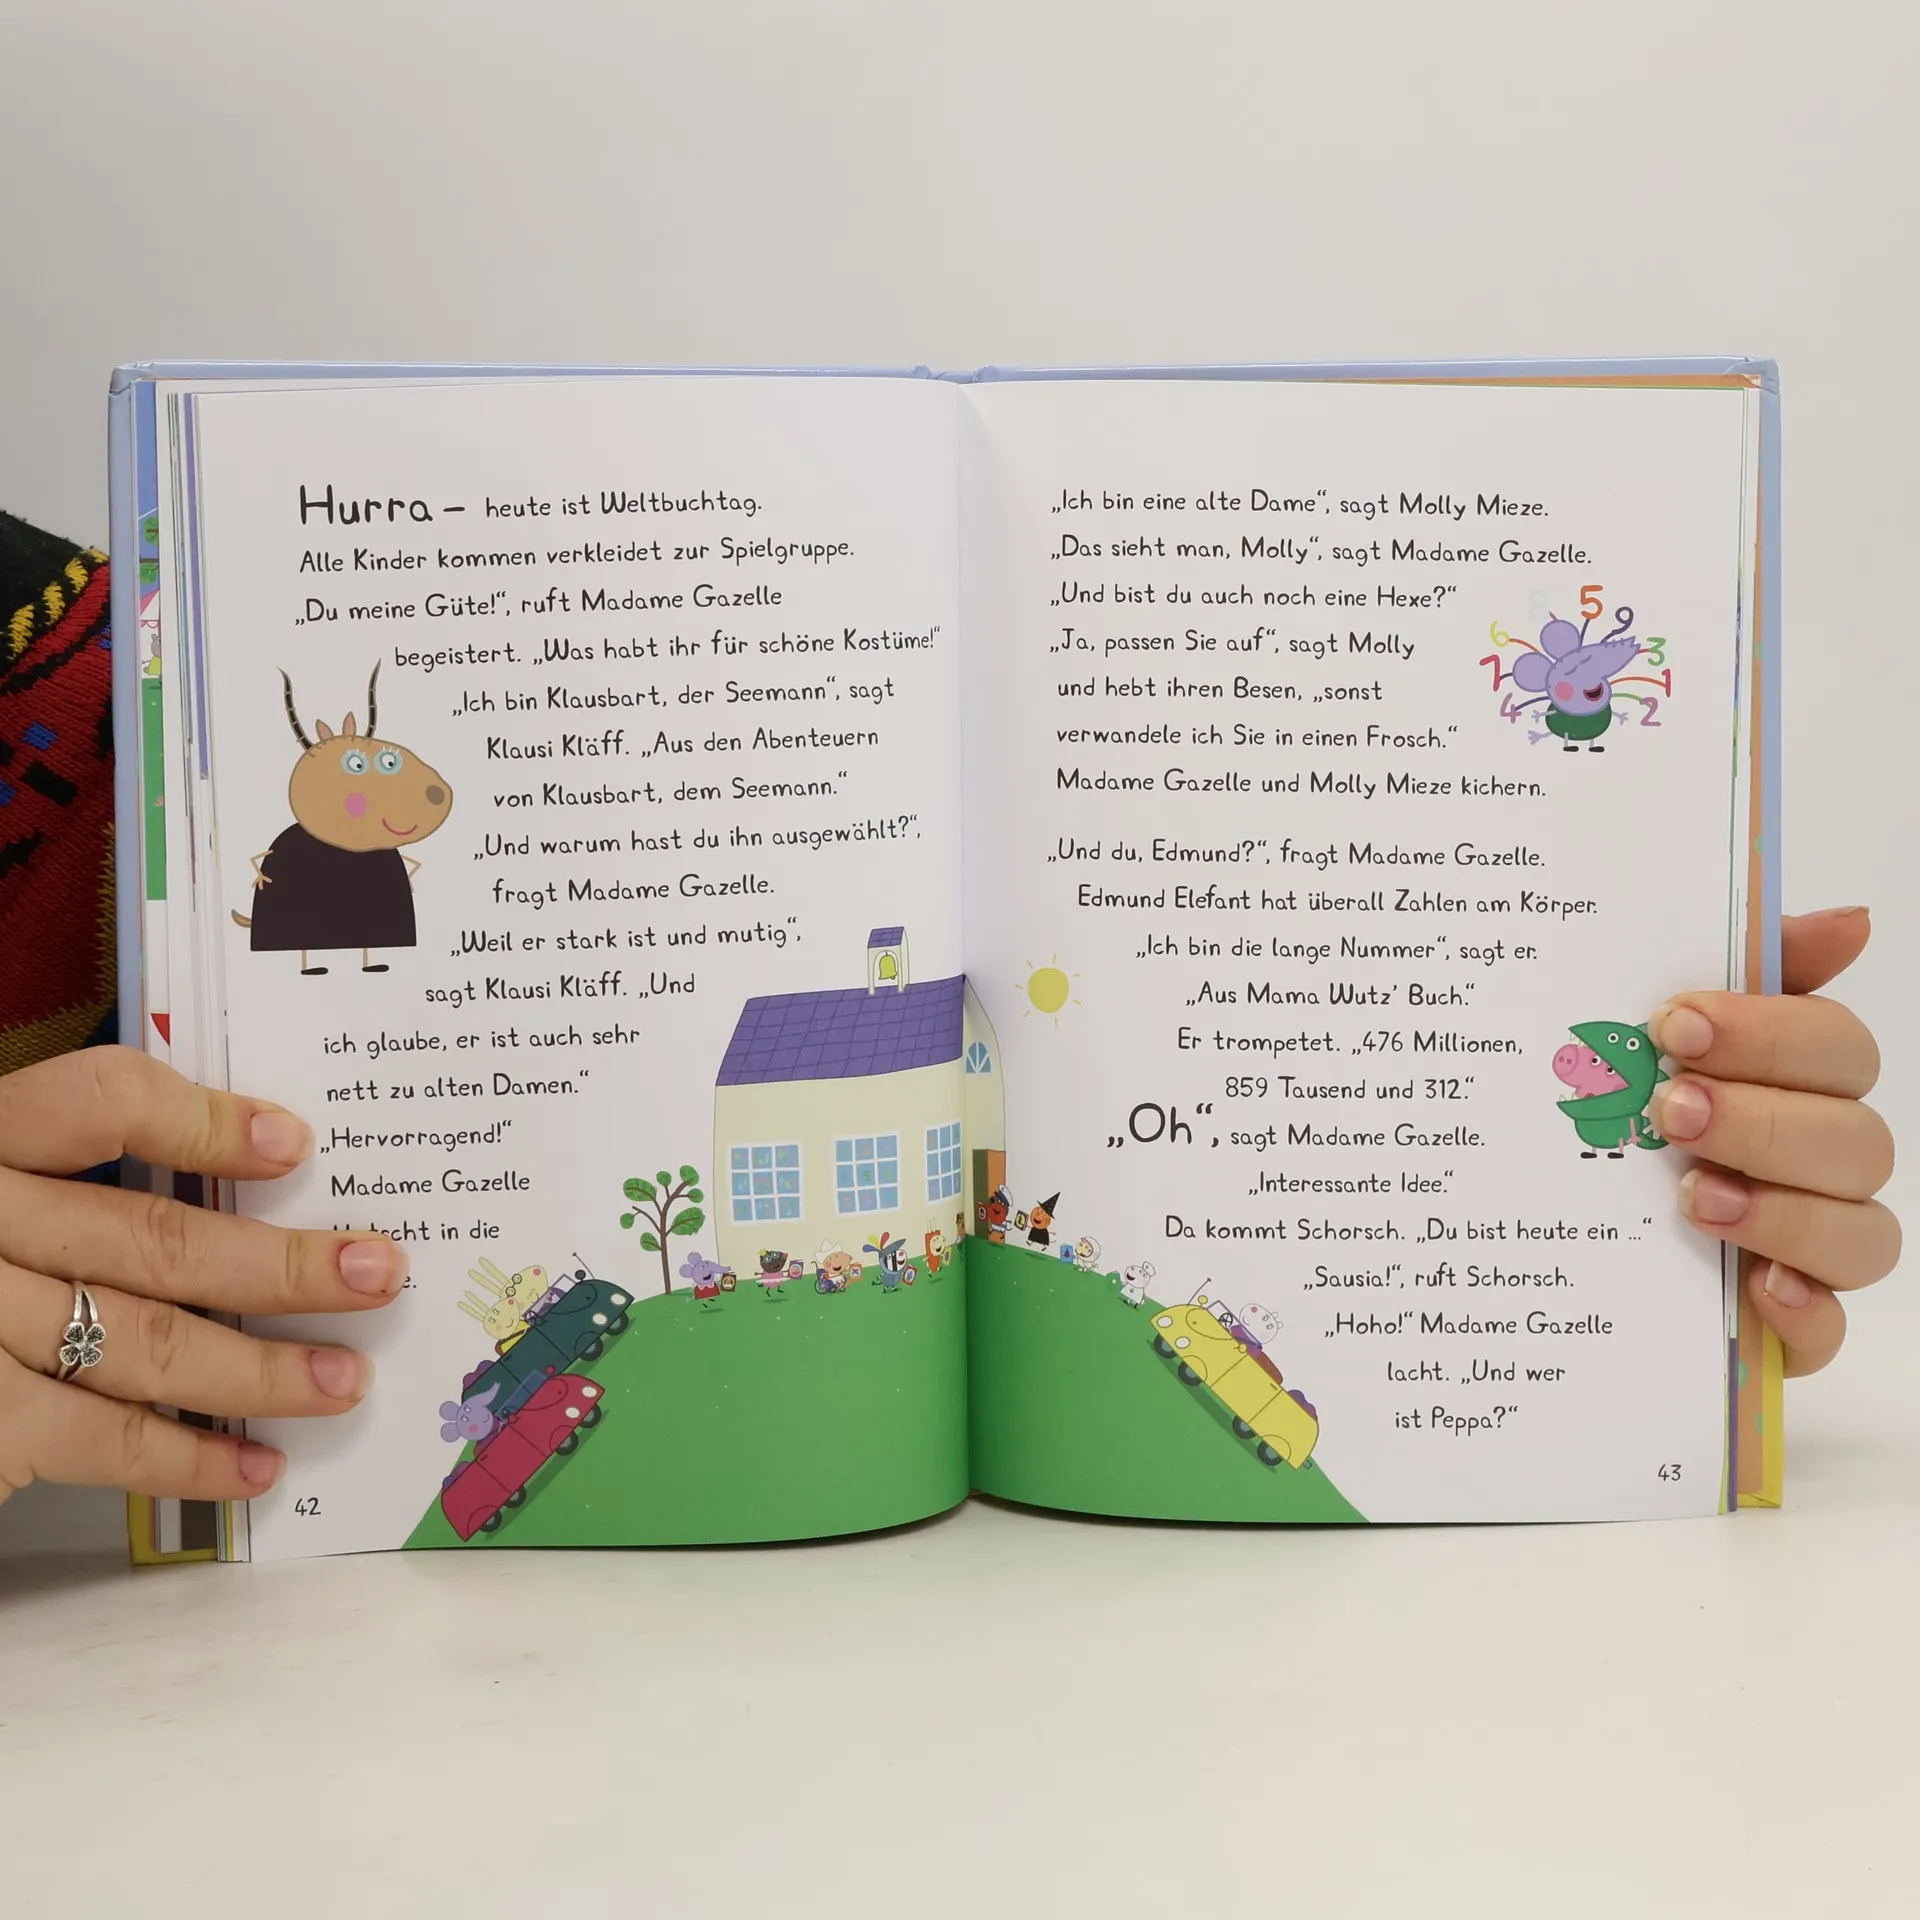 Hurra – heute ist Weltbuchtag.
Alle Kinder kommen verkleidet zur Spielgruppe.
„Du meine Güte!“, ruft Madame Gazelle
begeistert. „Was habt ihr für schöne Kostüme!“
„Ich bin Klausbart, der Seemann“, sagt
Klausi Kläff. „Aus den Abenteuern
von Klausbart, dem Seemann.“
„Und warum hast du ihn ausgewählt?“,
fragt Madame Gazelle.
„Weil er stark ist und mutig“,
sagt Klausi Kläff. „Und
ich glaube, er ist auch sehr
nett zu alten Damen.“
„Hervorragend!“
Madame Gazelle
in die
42
„Ich bin eine alte Dame“, sagt Molly Mieze.
„Das sieht man, Molly“, sagt Madame Gazelle.
„Und bist du auch noch eine Hexe?“
„Ja, passen Sie auf“, sagt Molly
und hebt ihren Besen, „sonst
verwandele ich Sie in einen Frosch.“
Madame Gazelle und Molly Mieze kichern.
„Und du, Edmund?“, fragt Madame Gazelle.
Edmund Elefant hat überall Zahlen am Körper.
„Ich bin die lange Nummer“, sagt er.
„Aus Mama Wutz’ Buch.“
Er trompetet. „476 Millionen,
859 Tausend und 312.“
„Oh“, sagt Madame Gazelle.
„Interessante Idee.“
Da kommt Schorsch. „Du bist heute ein ...“
„Sausia!“, ruft Schorsch.
„Hoho!“ Madame Gazelle
lacht. „Und wer
ist Peppa?“
43
8 5 9
6 3
7 1
4 2